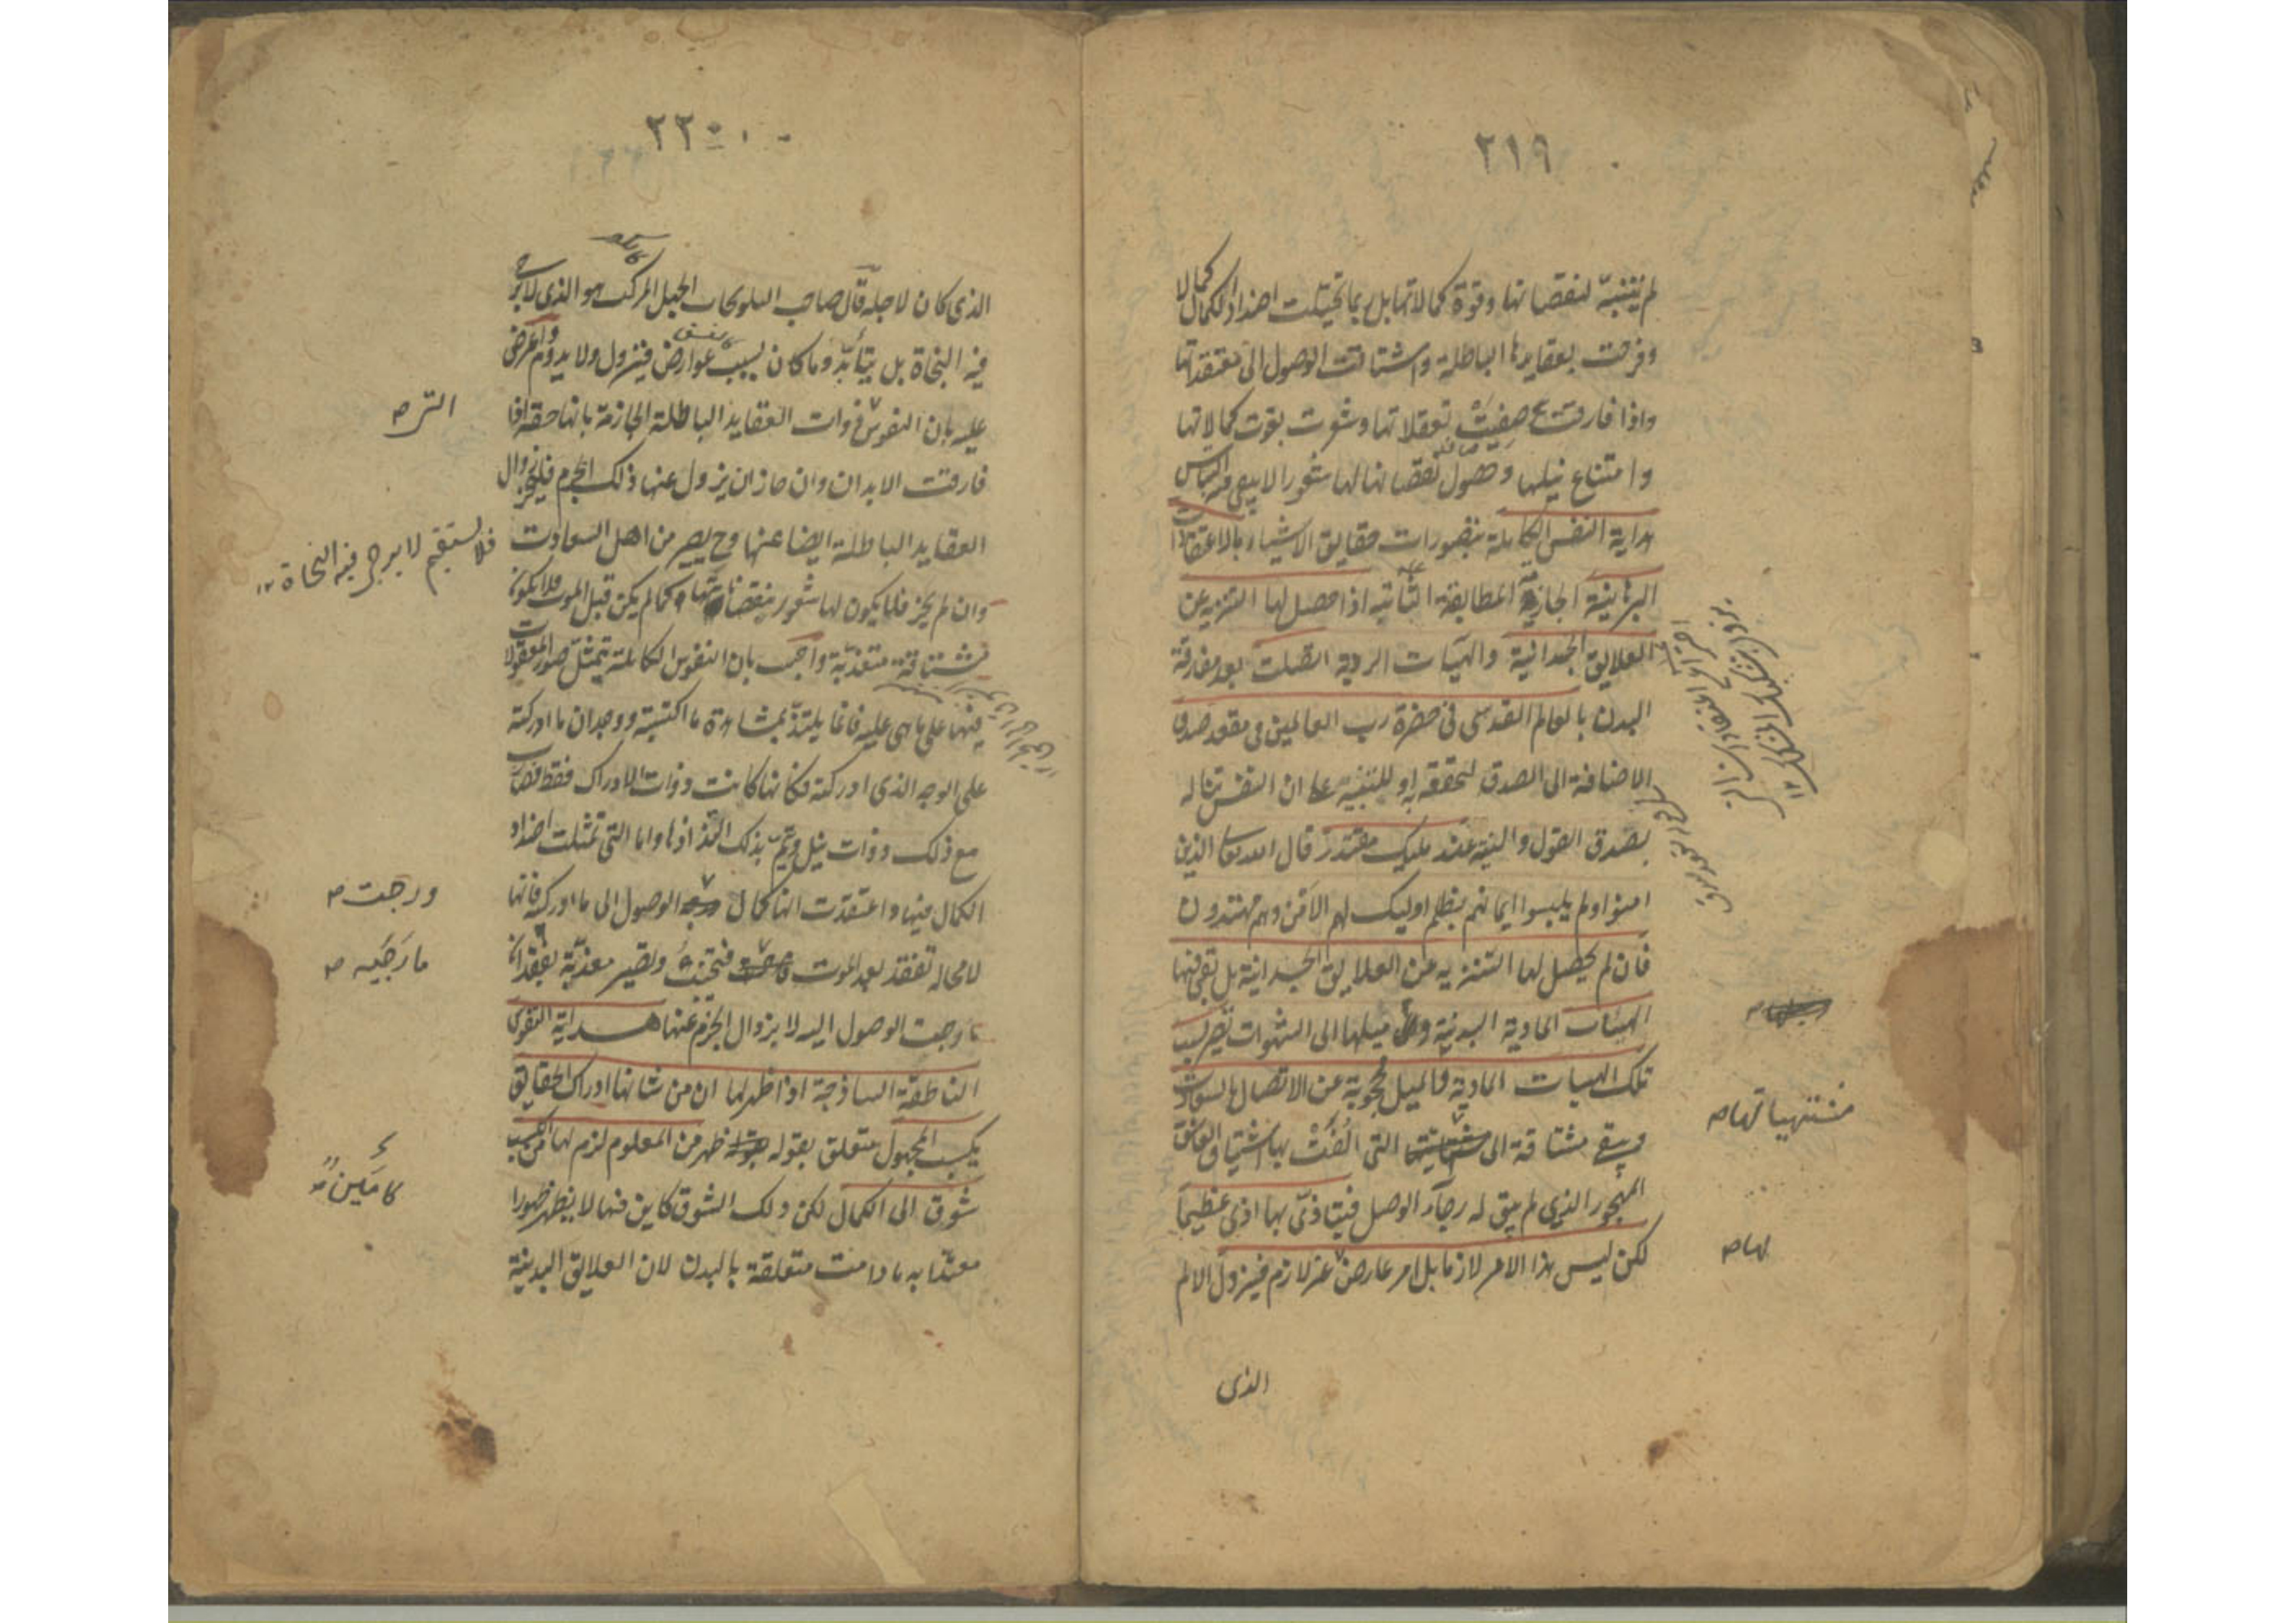 ٢١٩
لم يتنبه لنقصاناتها وقوة كمالاتها بل ربما تخيلت اضداد الكمال كمالا
وفرحت بعقايدها الباطلة واشتاقت الوصول الى معتقداتها
واذا فارقت تعقلاتها وشعرت بفوت كمالاتها
وامتناع نيلها وحصول نقصاناتها لها شعورا لا يبقى معه التباس
هداية النفس الكاملة بتصورات حقايق الاشياء بالاعتقادات
البرهانية الجازمة المطابقة الثابتة اذا حصل لها التنزيه عن
العلايق الجسدانية والهيات الردية اتصلت بعد مفارقة
البدن بالعالم القدسى فى حضرة رب العالمين فى مقعد صدق
الاضافة الى الصدق لتحققه به او للتنبيه على ان النفس تناله
بصدق القول والنية عند مليك مقتدر قال الله تعالى الذين
امنوا ولم يلبسوا ايمانهم بظلم اوليك لهم الامن وهم مهتدون
فان لم يحصل لها التنزيه عن العلايق الجسدانية بل تبقى فيها
الهيئات المادية البدنية و ميلها الى الشهوات تصير بسبب
تلك الهيات المادية والميل محجوبة عن الاتصال بالسعادة
ويبقى مشتاقة الى التى الفت بها اشتياق العاشق
المهجور الذى لم يبق له رجاء الوصل فيتاذى بها اذى عظيما
لكن ليس هذا الامر لازما بل امر عارض غير لازم فيزول الالم
مشتهياتها ص
بها ص
الذى
٢٢٠
الذى كان لاجله قال صاحب التلويحات الجهل المركب هو الذى لا يرجى
فيه النجاة بل يتأبد وما كان بسبب عوارض فيزول ولا يدوم واعترض
عليه بان النفوس ذوات العقايد الباطلة الجازمة بانها حقة اذا
فارقت الابدان وان جاز ان يزول عنها ذلك الجزم فليجز زوال
العقايد الباطلة ايضا عنها وح يصير من اهل السعادت
وان لم يجز فلا يكون لها شعور بنقصاناتها وكما لم يكن قبل الموت فلا يكون
مشتاقة متعذبة واجيب بان النفوس الكاملة يتمثل صور المعقولات
فيها على ما هى عليه فانما يلتذ بمشاهدة ما اكتسبته ووجدان ما ادركته
على الوجه الذى ادركته فكانها كانت ذوات الادراك فقط فصارت
مع ذلك ذوات نيل ويتم بذلك التذاذها واما التى تمثلت اضداد
الكمال فيها واعتقدت انها كمال الوصول الى ما ادركته فانها
لا محاله تفقد بعد الموت فتحزن وتصير معذبة بفقدان
ما رجت الوصول اليه لا بزوال الجزم عنها هداية النفوس
الناطقة الساذجة اذا ظهر لها ان من شانها ادراك الحقايق
بكسب المجهول متعلق بقوله ظهر من المعلوم لزم لها من الكسب
شوق الى الكمال لكن ذلك الشوق كاين فيها لا يظهر ظهورا
معتدا به ما دامت متعلقة بالبدن لان العلايق البدنية
التى ص
فلا يستقيم لا يرجى فيه النجاة
ورجت ص
ما رجيه ص
كامن